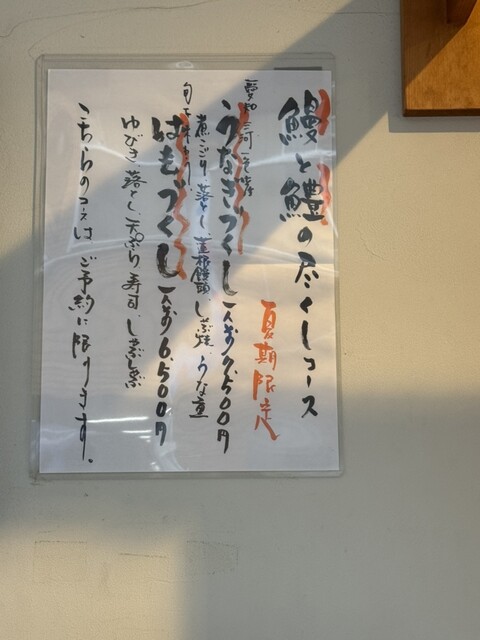 鰻と鱧の尽くしコース
夏期限定
愛知 三河一色産
うなぎづくし 一人前 7,500円
煮こごり、落とし、蓮根饅頭、しゃぶ焼、うな重
旬を味わう
はもづくし 一人前 6,500円
ゆびき 落とし、天ぷら、寿司、しゃぶしゃぶ
こちらのコースは ご予約に限ります。